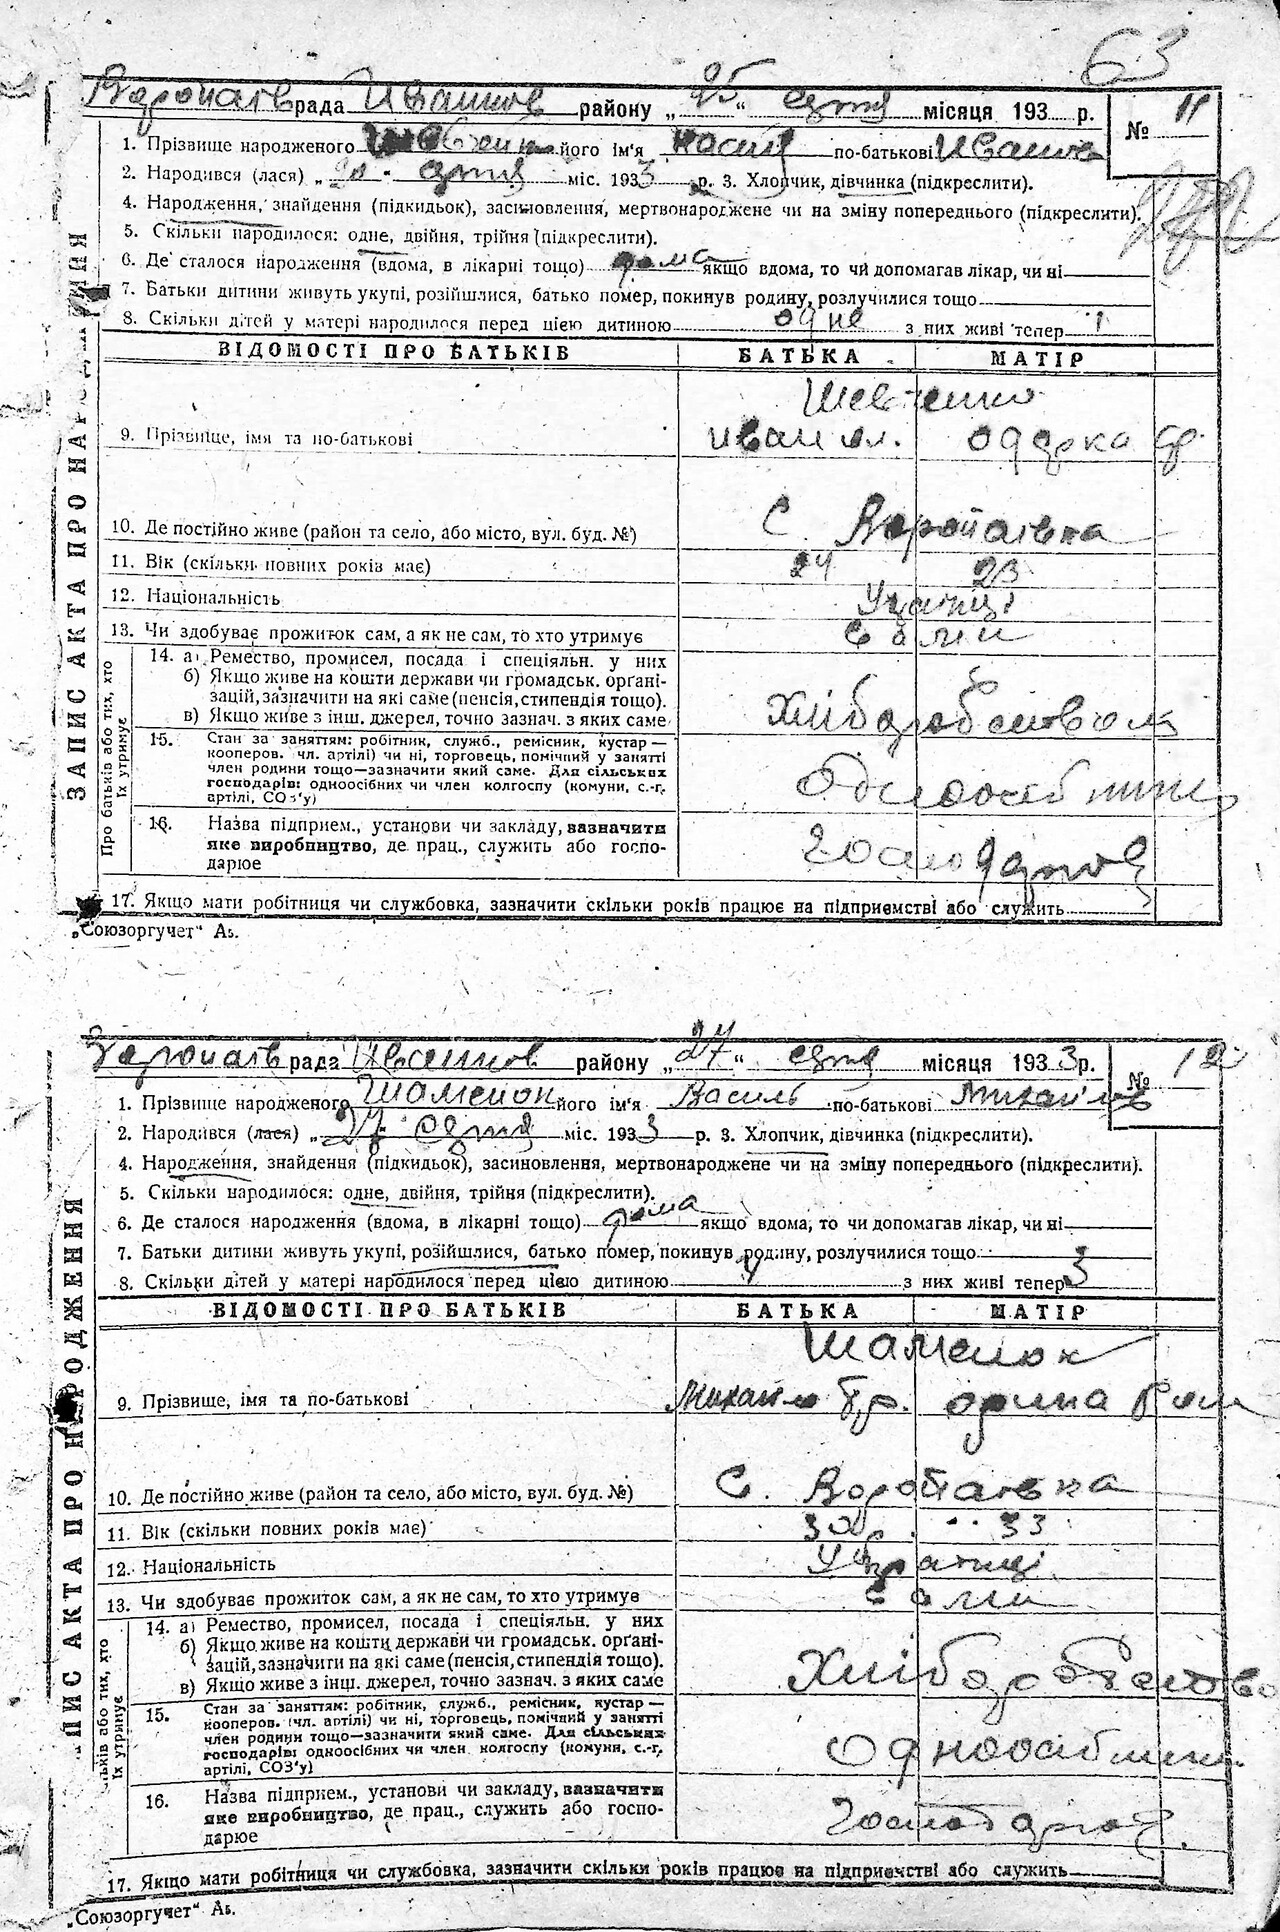 63
рада район у „25“ січня місяця 193 р.
№ 11
1. Прізвище народженого його ім'я по-батькові Иванов
2. Народився (лася) „20“ січня міс. 1933 р. 3. Хлопчик, дівчинка (підкреслити).
4. Народження, знайдення (підкидьок), засиновлення, мертвонароджене чи на зміну попереднього (підкреслити).
5. Скільки народилося: одне, двійня, трійня (підкреслити).
6. Де сталося народження (вдома, в лікарні тощо) дома якщо вдома, то чи допомагав лікар, чи ні
7. Батьки дитини живуть укупі, розійшлися, батько помер, покинув родину, розлучилися тощо
8. Скільки дітей у матері народилося перед цією дитиною одне з них живі тепер 1
ЗАПИС АКТА ПРО НАРОДЖЕННЯ
ВІДОМОСТІ ПРО БАТЬКІВ БАТЬКА МАТІР
Шевченко
9. Прізвище, імя та по-батькові Иван одарка
10. Де постійно живе (район та село, або місто, вул. буд. №) С. Воропаівка
11. Вік (скільки повних років має) 24 23
12. Національність
13. Чи здобуває прожиток сам, а як не сам, то хто утримує сами
Про батьків або тих, хто їх утримує
14. а) Ремество, промисел, посада і спеціяльн. у них
б) Якщо живе на кошти держави чи громадськ. органі-
зацій, зазначити на які саме (пенсія, стипендія тощо).
в) Якщо живе з інш. джерел, точно зазнач. з яких саме
15. Стан за заняттям: робітник, служб., ремісник, кустар —
кооперов. (чл. артілі) чи ні, торговець, помічний у занятті
член родини тощо—зазначити який саме. Для сільських
господарів: одноосібних чи член колгоспу (комуни, с.-г.
артілі, СОЗ'у)
16. Назва підприєм., установи чи закладу, зазначити
яке виробництво, де прац., служить або госпо-
дарює
17. Якщо мати робітниця чи службовка, зазначити скільки років працює на підприємстві або служить
„Союзоргучет“ Аз.
рада район у „27“ січня місяця 1933 р.
№ 12
1. Прізвище народженого Шаменок його ім'я Василь по-батькові Михайлов
2. Народився (лася) „27 січня міс. 1933 р. 3. Хлопчик, дівчинка (підкреслити).
4. Народження, знайдення (підкидьок), засиновлення, мертвонароджене чи на зміну попереднього (підкреслити).
5. Скільки народилося: одне, двійня, трійня (підкреслити).
6. Де сталося народження (вдома, в лікарні тощо) дома якщо вдома, то чи допомагав лікар, чи ні
7. Батьки дитини живуть укупі, розійшлися, батько помер, покинув родину, розлучилися тощо
8. Скільки дітей у матері народилося перед цією дитиною 4 з них живі тепер 3
ЗАПИС АКТА ПРО НАРОДЖЕННЯ
ВІДОМОСТІ ПРО БАТЬКІВ БАТЬКА МАТІР
Шаменок
9. Прізвище, імя та по-батькові Михайло орина
10. Де постійно живе (район та село, або місто, вул. буд. №) С. Воропаівка
11. Вік (скільки повних років має) 33
12. Національність
13. Чи здобуває прожиток сам, а як не сам, то хто утримує сами
14. а) Ремество, промисел, посада і спеціяльн. у них
б) Якщо живе на кошти держави чи громадськ. органі-
зацій, зазначити на які саме (пенсія, стипендія тощо).
в) Якщо живе з інш. джерел, точно зазнач. з яких саме
15. Стан за заняттям: робітник, служб., ремісник, кустар —
кооперов. (чл. артілі) чи ні, торговець, помічний у занятті
член родини тощо—зазначити який саме. Для сільських
господарів: одноосібних чи член колгоспу (комуни, с.-г.
артілі, СОЗ'у)
16. Назва підприєм., установи чи закладу, зазначити
яке виробництво, де прац., служить або госпо-
дарює
17. Якщо мати робітниця чи службовка, зазначити скільки років працює на підприємстві або служить
„Союзоргучет“ Аз.